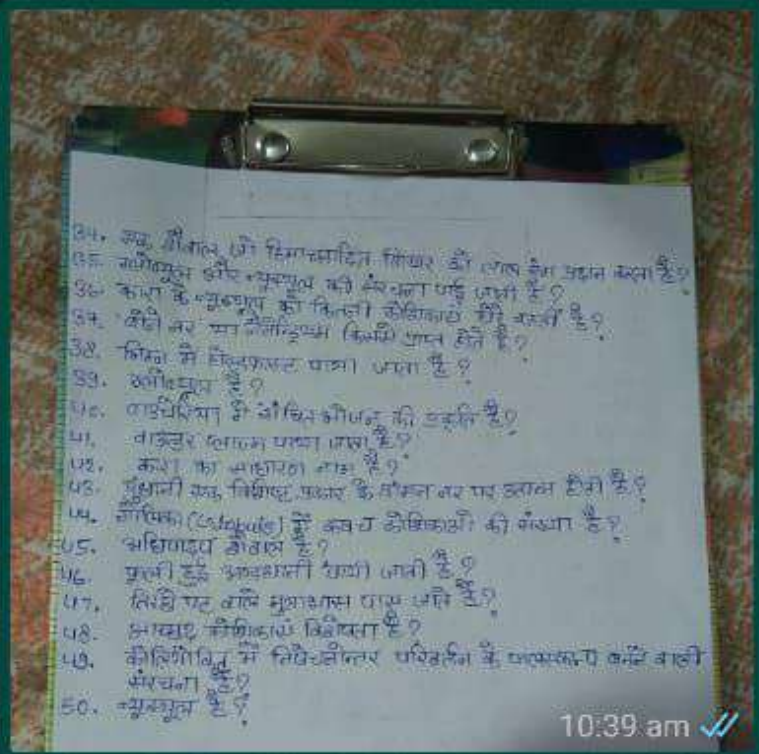 34. एक शैवाल जो हिमाच्छादित शिखर को लाल रंग प्रदान करता है?
35. ग्लोब्यूल और न्यूक्यूल की संरचना पाई जाती है?
36. कारा के न्यूक्यूल को कितनी कोशिकायें घेरे रहती हैं?
37. बौने नर या नैनेन्ड्रियम किसमें प्राप्त होते हैं?
38. निम्न में होल्डफास्ट पाया जाता है?
39. ग्लोब्यूल है?
40. वाउचेरिया में संचित भोजन की प्रकृति है?
41. वाउन्डर प्लाज्म पाया जाता है?
42. कारा का साधारण नाम है?
43. पुंधानी एक विशिष्ट प्रकार के वामन नर पर उत्पन्न होती है?
44. गोलिका (Globule) में कवच कोशिकाओं की संख्या है?
45. अधिपादप शैवाल है?
46. फूली हुई अण्डधानी पायी जाती है?
47. तिरछे पट वाले मूलाभास पाए जाते हैं?
48. आच्छद कोशिकायें विशेषता है?
49. कोलियोकीट में निषेचनोत्तर परिवर्तन के फलस्वरूप बनने वाली
संरचना है?
50. न्यूक्यूल है?
10:39 am